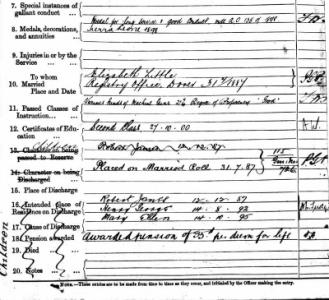 7. Special instances of gallant conduct
Medal for long Service & good Conduct
8. Medals, decorations, and annuities
Sierra Leone 1898
9. Injuries in or by the Service
10. To whom Married Place and Date
Elizabeth Little
Registry Office, Dover 31/7/1887
11. Passed Classes of Instruction
Good
12. Certificates of Education
Second Class 27.10.00
13. Character on being passed to Reserve
Robert James 12.12.87
Placed on Married Roll 31.7.87
14. Character on being Discharged
15. Place of Discharge
16. Intended Place of Residence on Discharge
Robert James 12-12-87
Henry George 14-8-92
Mary Ellen 14-10-95
17. Cause of Discharge
18. Pension awarded
Awarded pension of 25d per diem for life
19. Died
20. Notes
Children
NOTE.—These entries are to be made from time to time as they occur, and initialled by the Officer making the entry.